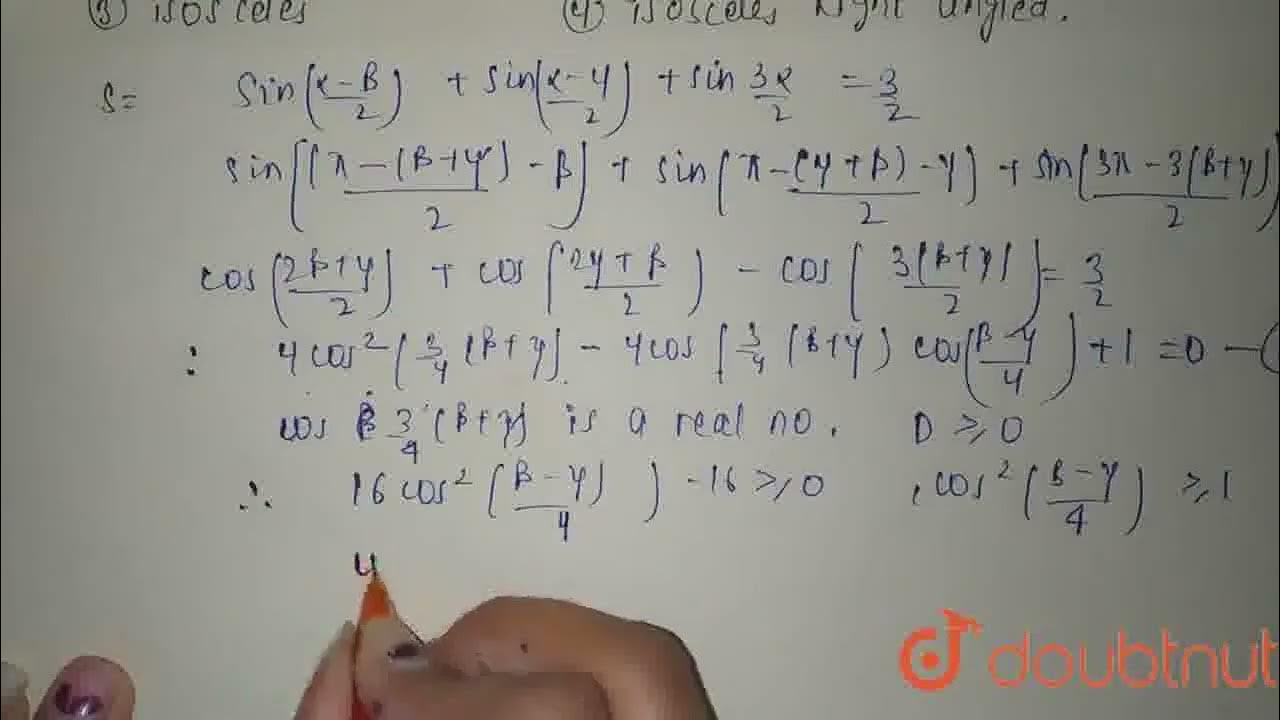 (3) isosceles (4) isosceles Right angled.
S= Sin(α-β/2) + Sin(α-y/2) + sin 3α/2 = 3/2
sin[(π-(β+y)-β)/2] + sin(π-(y+β)-y)/2 + sin(3π-3(β+y))/2
cos(2β+y/2) + cos(2y+β/2) - cos(3(β+y)/2) = 3/2
: 4cos²(3/4(β+y) - 4cos(3/4(β+y) cos(β-y/4) + 1 = 0 - (
cos 3/4(β+y) is a real no. D ≥ 0
∴ 16 cos²(β-y)/4) - 16 ≥ 0 , cos²(β-y/4) ≥ 1
4
doubtnut